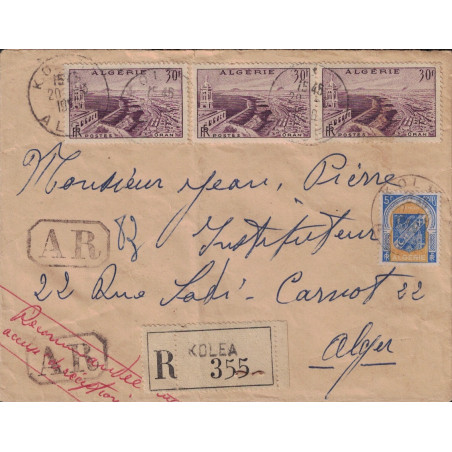 KOLEA
15 45
ALGER
ALGÉRIE 30F
ALGÉRIE 30F
ALGÉRIE 30F
RF POSTES ORAN
RF POSTES ORAN
RF POSTES ORAN
Monsieur Jean, Pierre
5F
ALGÉRIE
AR
Instituteur
22 Rue Sadi-Carnot 22
Alger
Recommandée
accusé réception
AR
R KOLEA
355